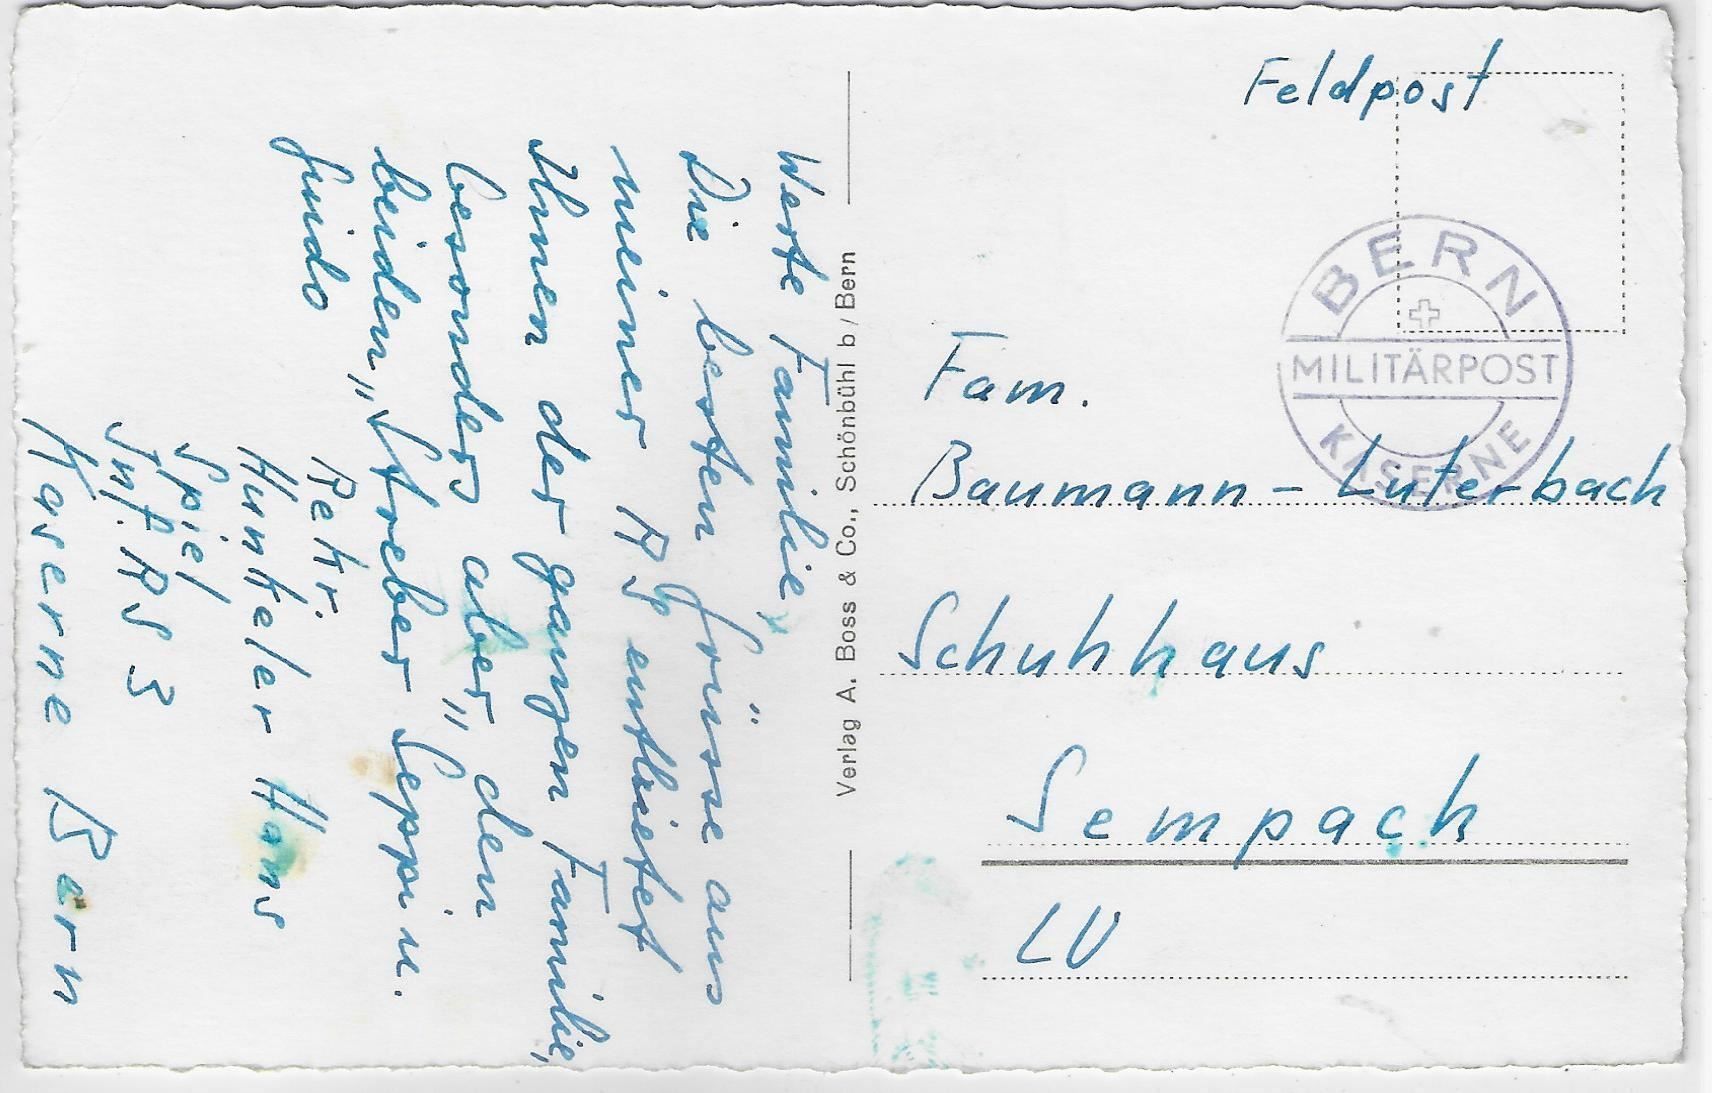 Werte Familie,
Die besten Grüsse aus
meiner RS entbietet
Ihnen der ganzen Familie,
besonders aber „den
beiden „Streber Seppi u.
Guido
Rekr.
Hunkeler Hans
Spiel
Inf. RS 3
Kaserne Bern
Verlag A. Boss & Co., Schönbühl b/Bern
Feldpost
BERN
MILITÄRPOST
KASERNE
Fam.
Baumann - Luterbach
Schuhhaus
Sempach
LU